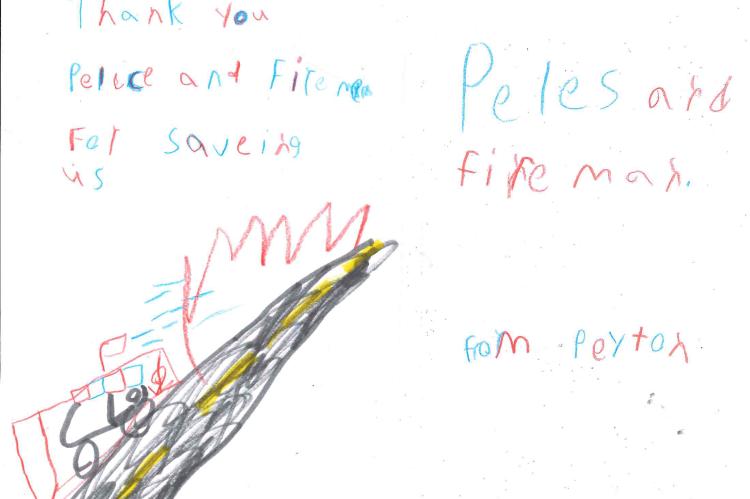 Thank you
Peluce and Fireman
For saveing
us
Peles and
fire man.
from Peyton